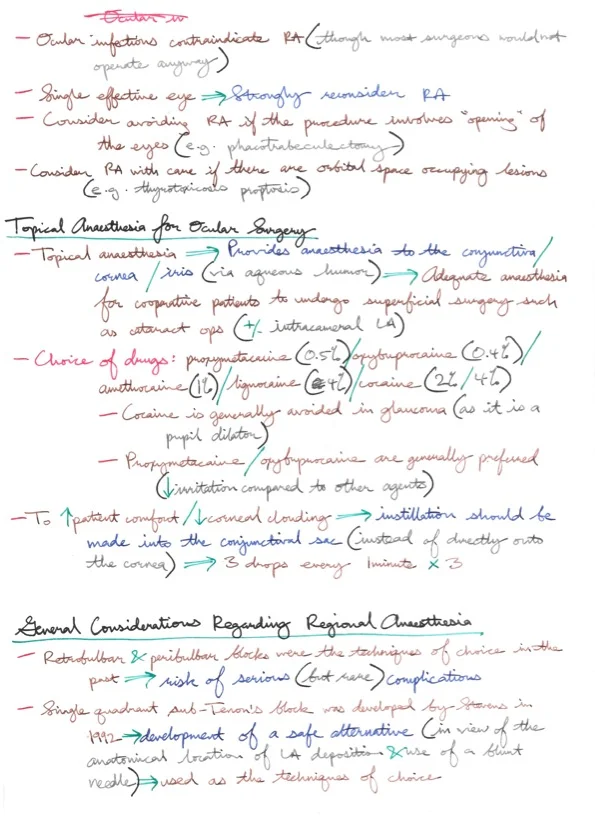 Ocular in
— Ocular infections contraindicate RA (though most surgeons would not
operate anyway)
— Single effective eye ⇒ Strongly reconsider RA
— Consider avoiding RA if the procedure involves "opening" of
the eyes (e.g. phacotrabeculectomy)
— Consider RA with care if there are orbital space occupying lesions
(e.g. thyrotoxicosis proptosis)
Topical Anaesthesia for Ocular Surgery
— Topical anaesthesia ⇒ Provides anaesthesia to the conjunctiva/
cornea/iris (via aqueous humor) ⇒ Adequate anaesthesia
for cooperative patients to undergo superficial surgery such
as cataract ops (+/- intracameral LA)
— Choice of drugs: proxymetacaine (0.5%)/oxybuprocaine (0.4%)/
amethocaine (1%)/lignocaine (4%)/cocaine (2%/4%)
— Cocaine is generally avoided in glaucoma (as it is a
pupil dilator)
— Proxymetacaine/oxybuprocaine are generally preferred
(↓irritation compared to other agents)
— To ↑patient comfort/↓corneal clouding ⇒ instillation should be
made into the conjunctival sac (instead of directly onto
the cornea) ⇒ 3 drops every 1minute × 3
General Considerations Regarding Regional Anaesthesia
— Retrobulbar & peribulbar blocks were the techniques of choice in the
past ⇒ risk of serious (but rare) complications
— Single quadrant sub-Tenon's block was developed by Stevens in
1992 ⇒ development of a safe alternative (in view of the
anatomical location of LA deposition & use of a blunt
needle) ⇒ used as the techniques of choice